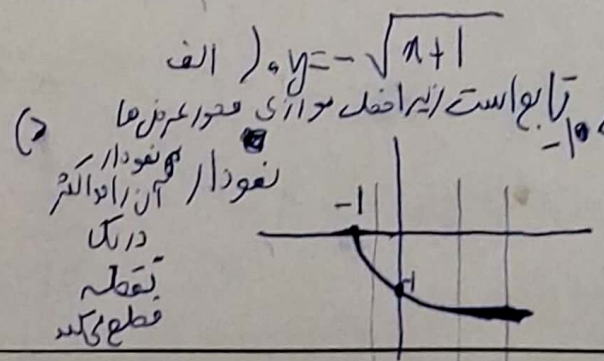 الف) y = -√(x+1)
تابع است زیرا خط موازی محور عرض ها
نمودار / نمودار
آن را حداکثر
در یک
نقطه
قطع می کند
-1
-1